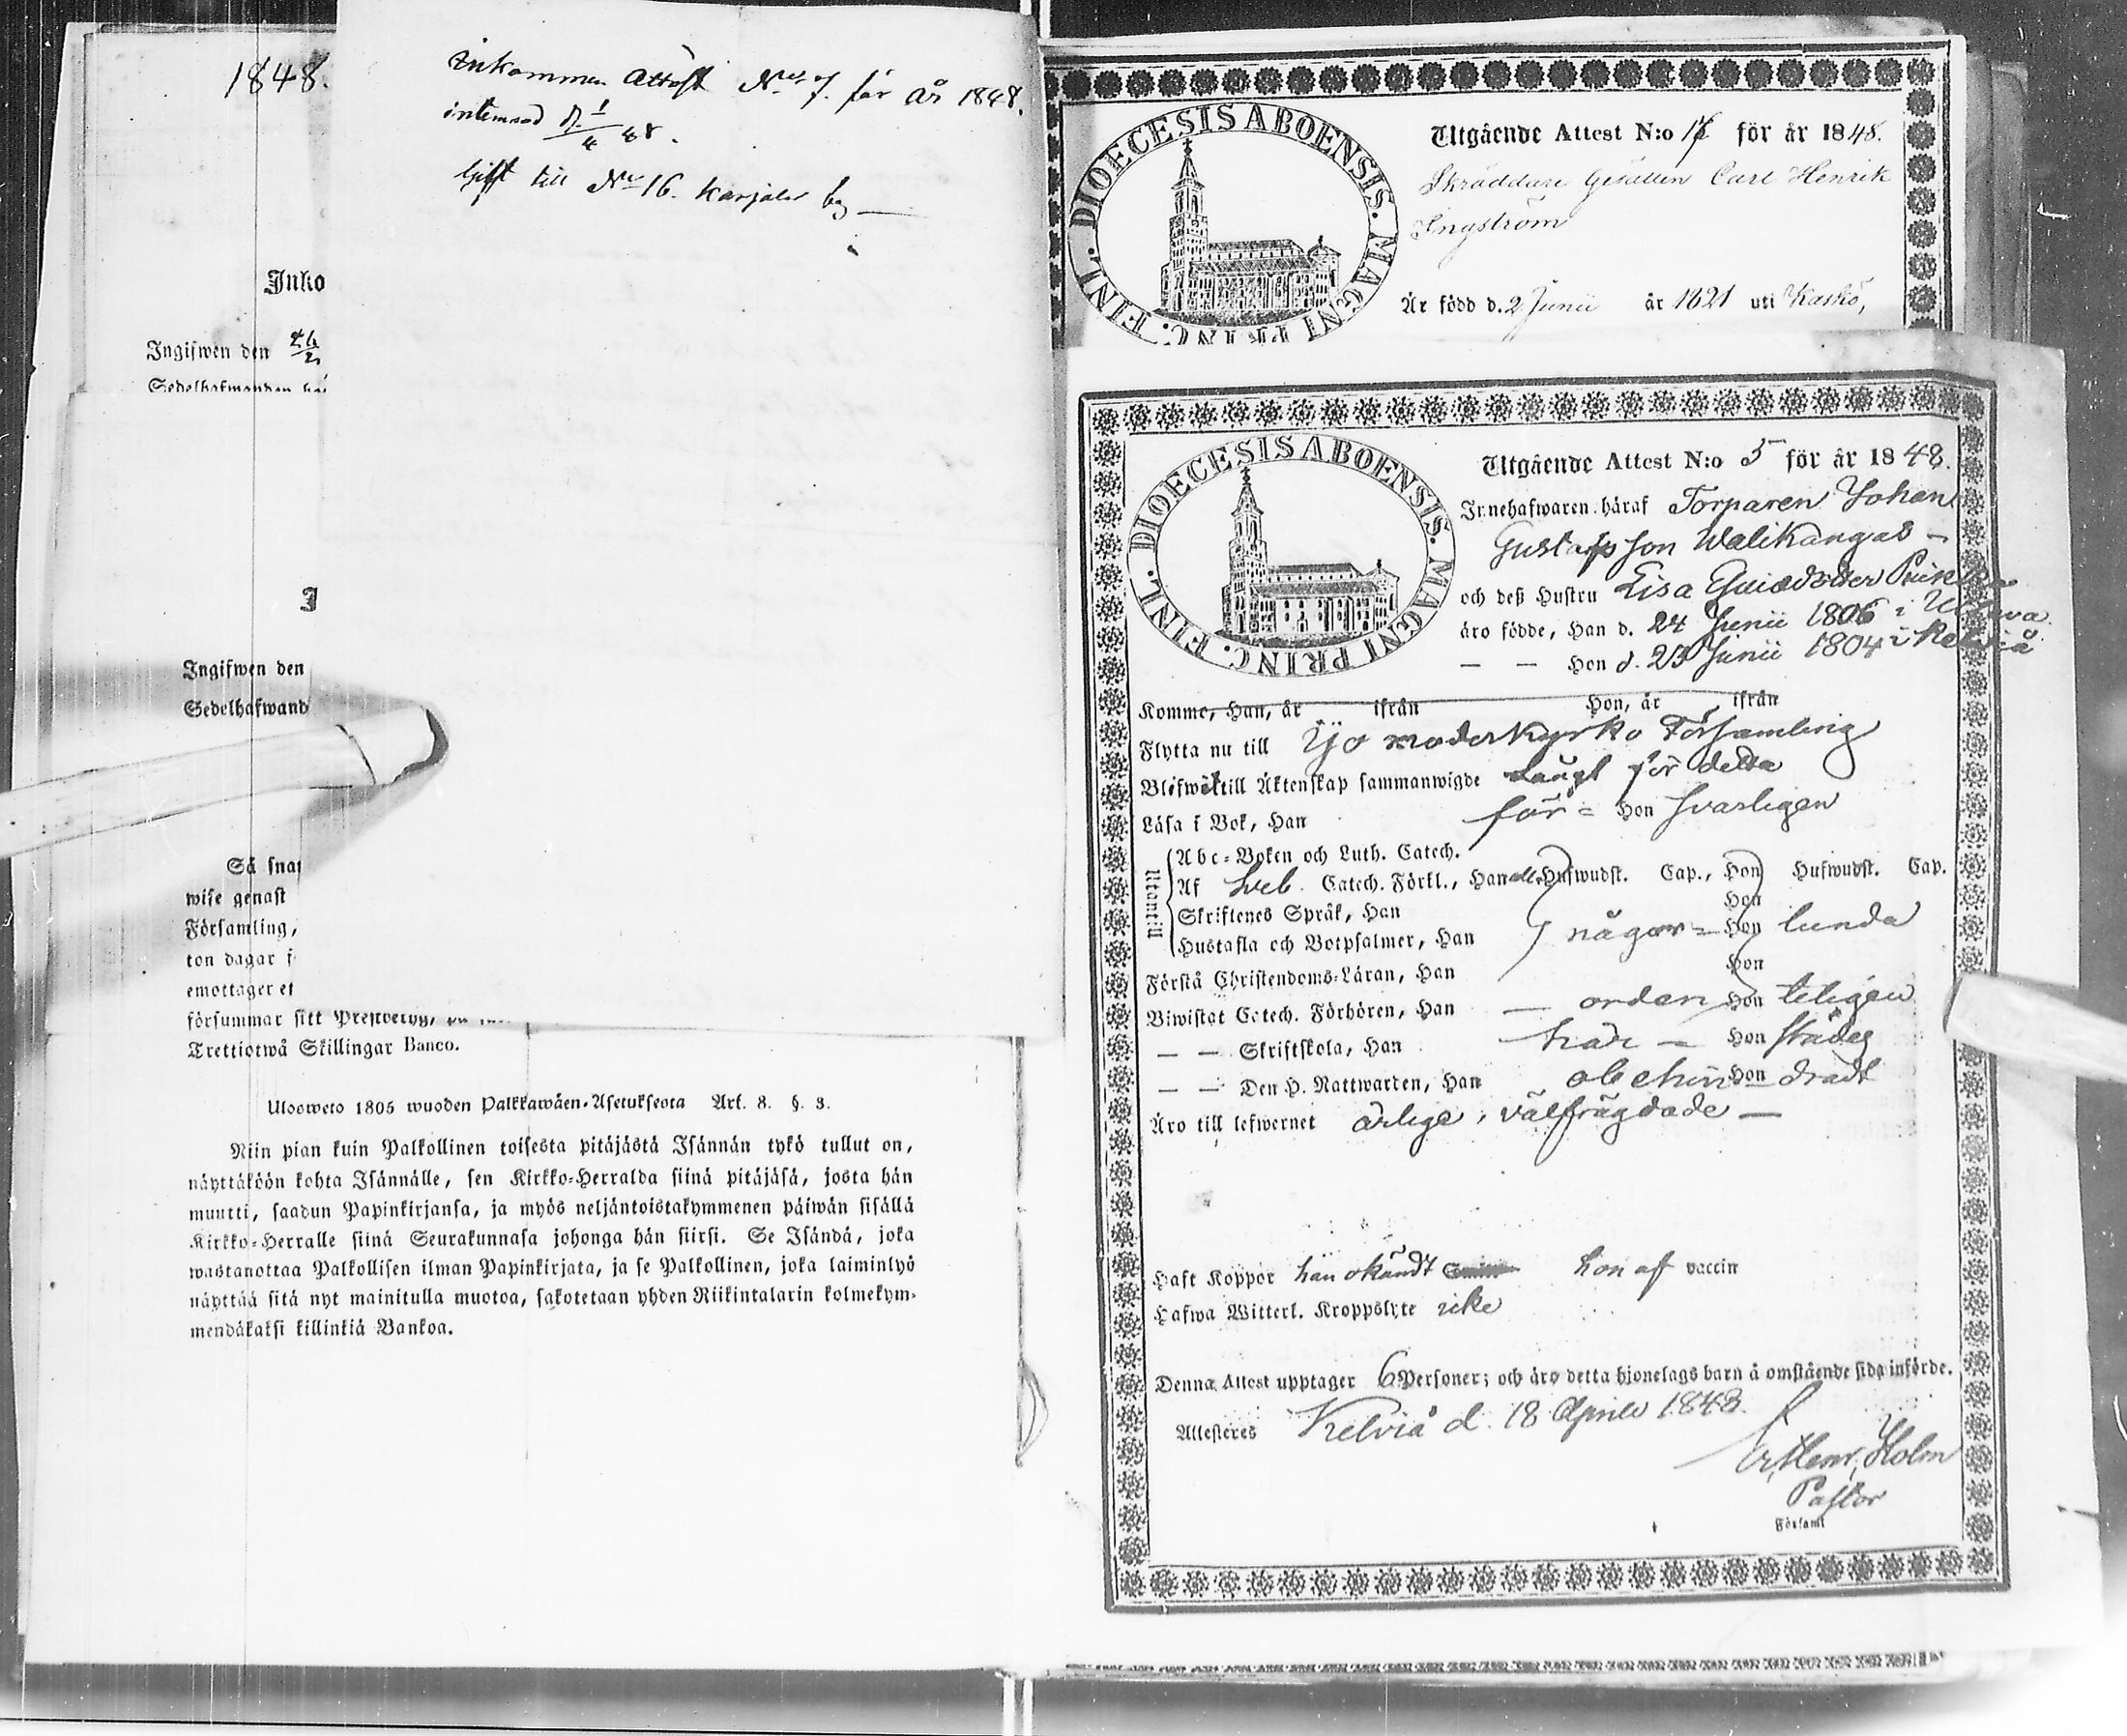 1848.
Inko
Ingifwen den 26/2
Sedelhafwanden hä
Ingifwen den
Sedelhafwand
Så snar
wise genast
Församling,
ton dagar f
emottager et
försummar sitt Prestbetyg,
Trettiotwå Skillingar Banco.
Ulosweto 1805 wuoden Palkkawäen-Asetuksesta Art. 8. §. 3.
Niin pian kuin Palkollinen toisesta pitäjästä Isännän tykö tullut on,
näyttäköön kohta Isännälle, sen Kirkko-Herralda siinä pitäjäsä, josta hän
muutti, saadun Papinkirjansa, ja myös neljäntoistakymmenen päiwän sisällä
Kirkko-Herralle siinä Seurakunnasa johonga hän siirsi. Se Isändä, joka
wastanottaa Palkollisen ilman Papinkirjata, ja se Palkollinen, joka laiminlyö
näyttää sitä nyt mainitulla muotoa, sakotetaan yhden Riikintalarin kolmekym-
mendäkaksi killinkiä Bankoa.
inkommen Attest No 7. för år 1848.
Gift till No 16. Karjalar by
DIOECESIS ABOENSIS. MAGNI PRINC. FINL.
Utgående Attest N:o 17 för år 1848.
Skräddare Gesällen Carl Henrik
Engström
Är född d. 2 Junii år 1821 uti Kaskö,
DIOECESIS ABOENSIS. MAGNI PRINC. FINL.
Utgående Attest N:o 5 för år 1848.
Innehafwaren häraf Torparen Johan
Gustafsson Walikangas –
och deß Hustru Lisa
äro födde, Han d. 24 Junii 1806 i Ullava
— — Hon d. 23 Junii 1804 i Kelviå
Komme, Han, år ifrån Hon, år ifrån
Flytta nu till Ijo moderkyrko Församling
Blifwit till Äktenskap sammanwigde långt för detta
Läsa i Bok, Han för = Hon svarligen
Utantill
Abc-Boken och Luth. Catech.
Af Sveb. Catech. Förkl., Han Hufwudst. Cap., Hon Hufwudst. Cap.
Skriftenes Språk, Han Hon
Hustafla och Botpsalmer, Han någor = Hon lunda
Förstå Christendoms-Läran, Han Hon
Biwistat Catech. Förhören, Han — orden Hon teligen
— — Skriftskola, Han har — Hon städes
— — Den H. Nattwarden, Han obehin Hon dradt
Äro till lefwernet ärlige, välfrägdade —
Haft Koppor han okändt hon af vaccin
Hafwa Witterl. Kroppslyte icke
Denna Attest upptager 6 Personer; och äro detta hjonelags barn å omstående sida införde.
Attesteres Kelviå d. 18 Aprill 1848.
Er. Henr. Holm
Pastor
Församl